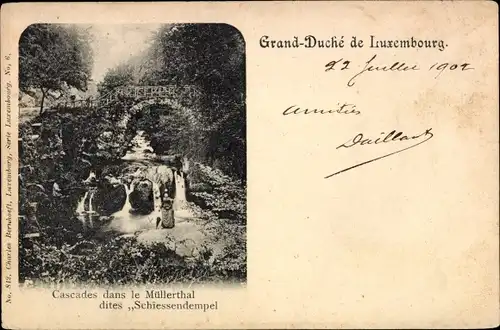 Grand-Duché de Luxembourg.
22 Juillet 1902
Amitiés
Daillart
Cascades dans le Müllerthal
dites „Schiessendempel
No. 812. Charles Bernhoeft, Luxemburg, Serie Luxembourg. No. 6.